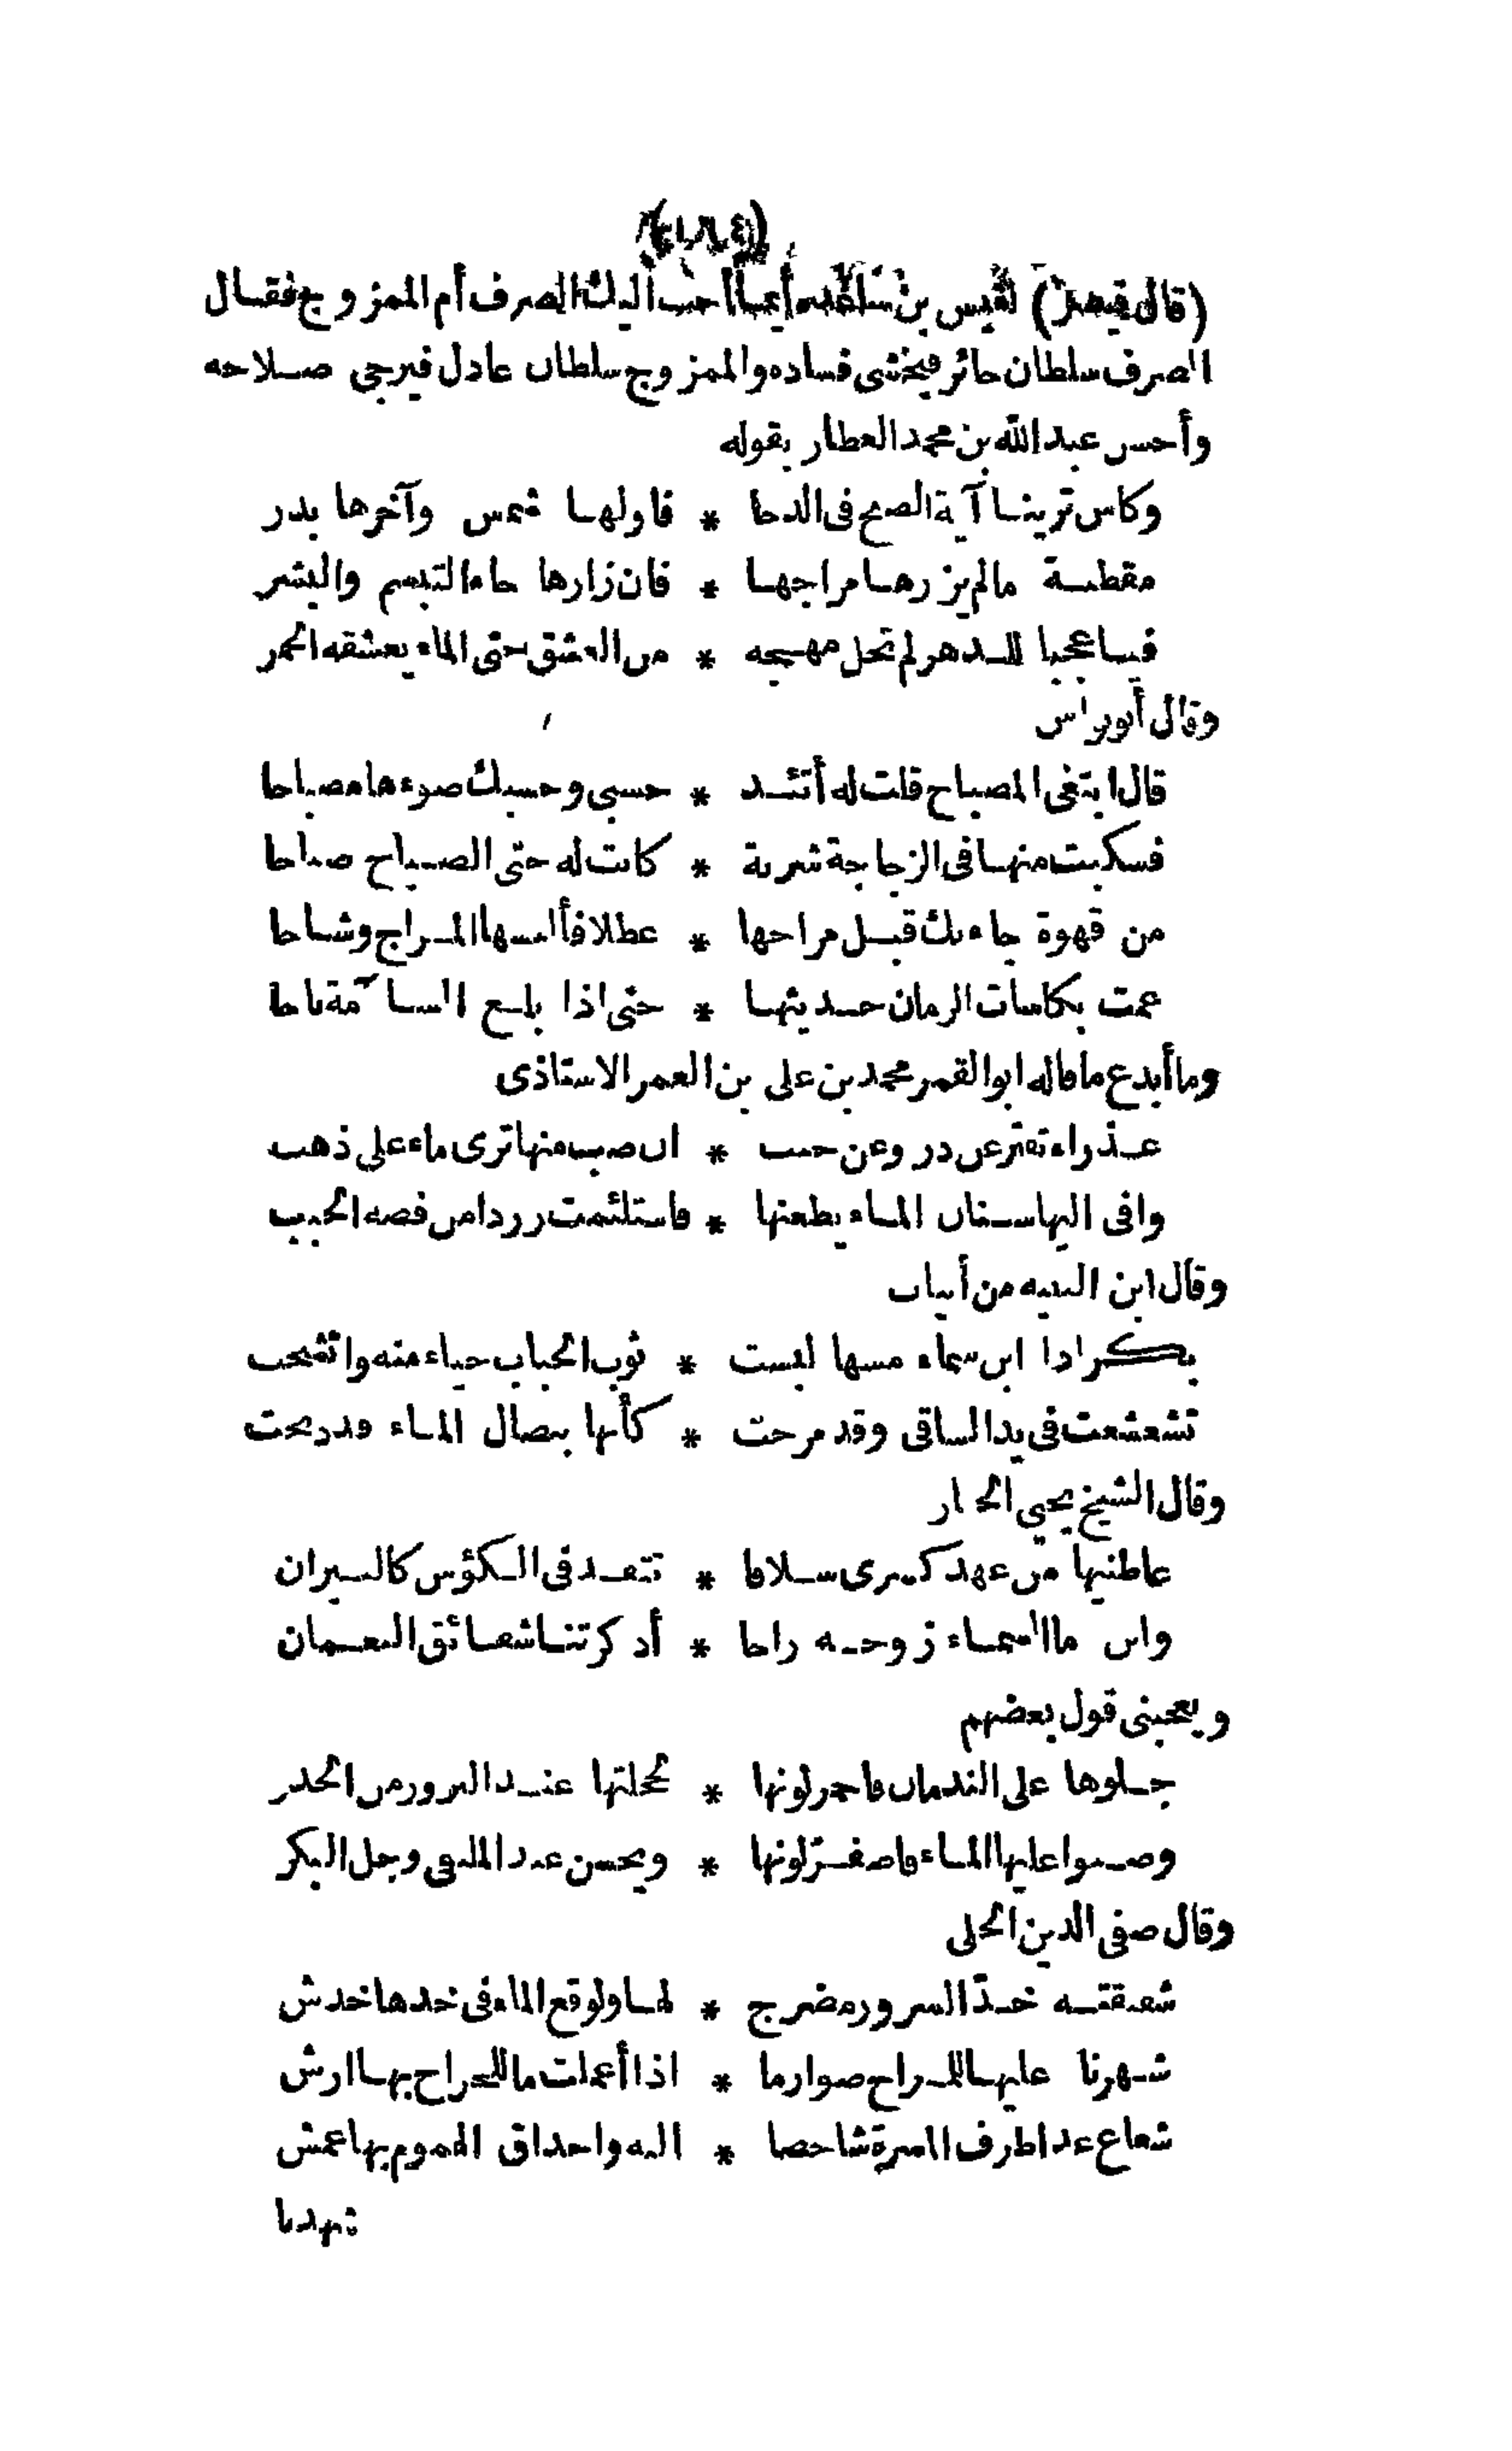 (قال قيصر) لقيس بن ساعدة أيما أحب اليك الصرف أم الممزوج فقال
الصرف سلطان جائر فيخشى فساده والممزوج سلطان عادل فيرجى صلاحه
وأحسن عبد الله بن محمد العطار بقوله
وكاس ترينا آية الصبح فى الدجا * فاولها شمس وآخرها بدر
مقطبة مالم يزرها مزاجها * فان زارها جاء التبسم والبشر
فيا عجبا للدهر لم تخل مهجة * من العشق حتى الماء يعشقه الخمر
وقال أبو نواس
قال ابتغى المصباح قلت له أتئد * حسبي وحسبك ضوءها مصباحا
فسكبت منها فى الزجاجة شربة * كانت له حتى الصباح صباحا
من قهوة جاءتك قبل مزاجها * عطلا فألبسها المزاج وشاحا
عمت بكاسات الزمان حديثها * حتى اذا بلغ السآمة باحا
وما أبدع ما قاله ابو القمر محمد بن على بن العمر الاستاذى
عذراء تفتر عن در وعن حبب * ان صب منها ترى ماء على ذهب
وافى اليها سنان الماء يطعنها * فاستلئمت زردا من فضة الحبب
وقال ابن النبيه من أبيات
بكر اذا ابن سماء مسها لبست * ثوب الحباب حياء منه واتشحت
تشعشعت فى يد الساقى وقد مزجت * كأنها بنصال الماء قد ذبحت
وقال الشيخ يحيي الخباز
عاطنيها من عهد كسرى سلافا * تتقد فى الكؤس كالنيران
وابن ماء السماء زوجه راحا * أذكرتنا شقائق النعمان
ويعجبنى قول بعضهم
جلوها على الندمان فاحمر لونها * لخجلتها عند البروز من الخدر
وصبوا عليها الماء فاصفر لونها * ويحسن عند الملتقى وجل البكر
وقال صفى الدين الحلى
شقيقته خد السرور مضرج * لها ولوقع الماء فى خدها خدش
شهرنا عليها للمزاح صوارما * اذا أعملت ما للجراح بها ارش
شعاع غدا طرف المسرة شاخصا * اليه واحداق الهموم بها عمش
شهدنا